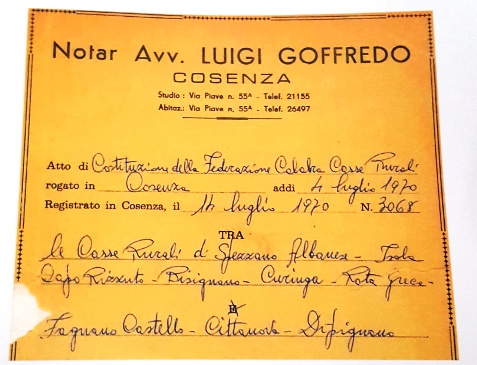 Notar Avv. LUIGI GOFFREDO
COSENZA
Studio: Via Piave n. 55A - Telef. 21155
Abitaz.: Via Piave n. 55A - Telef. 26497
Atto di Costituzione della Federazione Calabra Casse Rurali
rogato in Cosenza addì 4 luglio 1970
Registrato in Cosenza, il 14 luglio 1970 N. 3068
TRA
le Casse Rurali di Spezzano Albanese - Isola
Capo Rizzuto - Bisignano - Curinga - Rota Greca -
E
Fagnano Castello - Cittanova - Dipignano